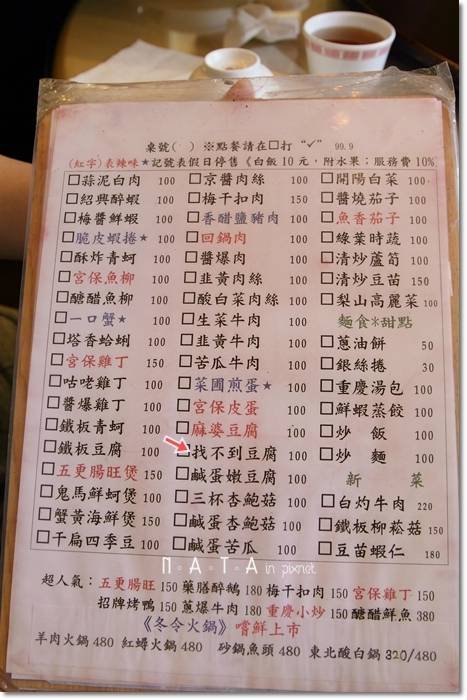 桌號( ) ※點餐請在□打“✓” 99.9
(紅字)表辣味★記號表假日停售《白飯10元，附水果；服務費10%
□蒜泥白肉 100 □京醬肉絲 100 □開陽白菜 100
□紹興醉蝦 100 □梅干扣肉 150 □醬燒茄子 100
□梅醬鮮蝦 100 □香醋鹽豬肉 100 □魚香茄子 100
□脆皮蝦捲★ 100 □回鍋肉 100 □綠葉時蔬 100
□酥炸青蚵 100 □醬爆肉 100 □清炒蘆筍 100
□宮保魚柳 100 □韭黃肉絲 100 □清炒豆苗 150
□醋醋魚柳 100 □酸白菜肉絲 100 □梨山高麗菜 100
□一口蟹★ 100 □生菜牛肉 100 麵食*甜點
□塔香蛤蜊 100 □韭黃牛肉 100 □蔥油餅 50
□宮保雞丁 100 □苦瓜牛肉 100 □銀絲捲 30
□咕咾雞丁 100 □菜圃煎蛋★ 100 □重慶湯包 100
□醬爆雞丁 100 □宮保皮蛋 100 □鮮蝦蒸餃 100
□鐵板青蚵 100 □麻婆豆腐 100 □炒 飯 100
□鐵板豆腐 100 □找不到豆腐 100 □炒 麵 100
□五更腸旺煲 150 □鹹蛋嫩豆腐 100 新 菜
□鬼馬鮮蚵煲 100 □三杯杏鮑菇 100 □白灼牛肉 220
□蟹黃海鮮煲 150 □鹹蛋杏鮑菇 100 □鐵板柳菘菇 150
□干扁四季豆 100 □鹹蛋苦瓜 100 □豆苗蝦仁 180
NATA in pixnet
超人氣：五更腸旺 150 藥膳醉鵝 180 梅干扣肉 150 宮保雞丁 150
招牌烤鴨 150 蔥爆牛肉 180 重慶小炒 150 醋醋鮮魚 380
《冬令火鍋》嚐鮮上市
羊肉火鍋 480 紅蟳火鍋 480 砂鍋魚頭 480 東北酸白鍋 320/480